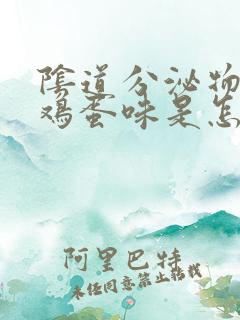 陰道分泌物
鸡蛋味是怎
阿里巴特
未经同意禁止转载